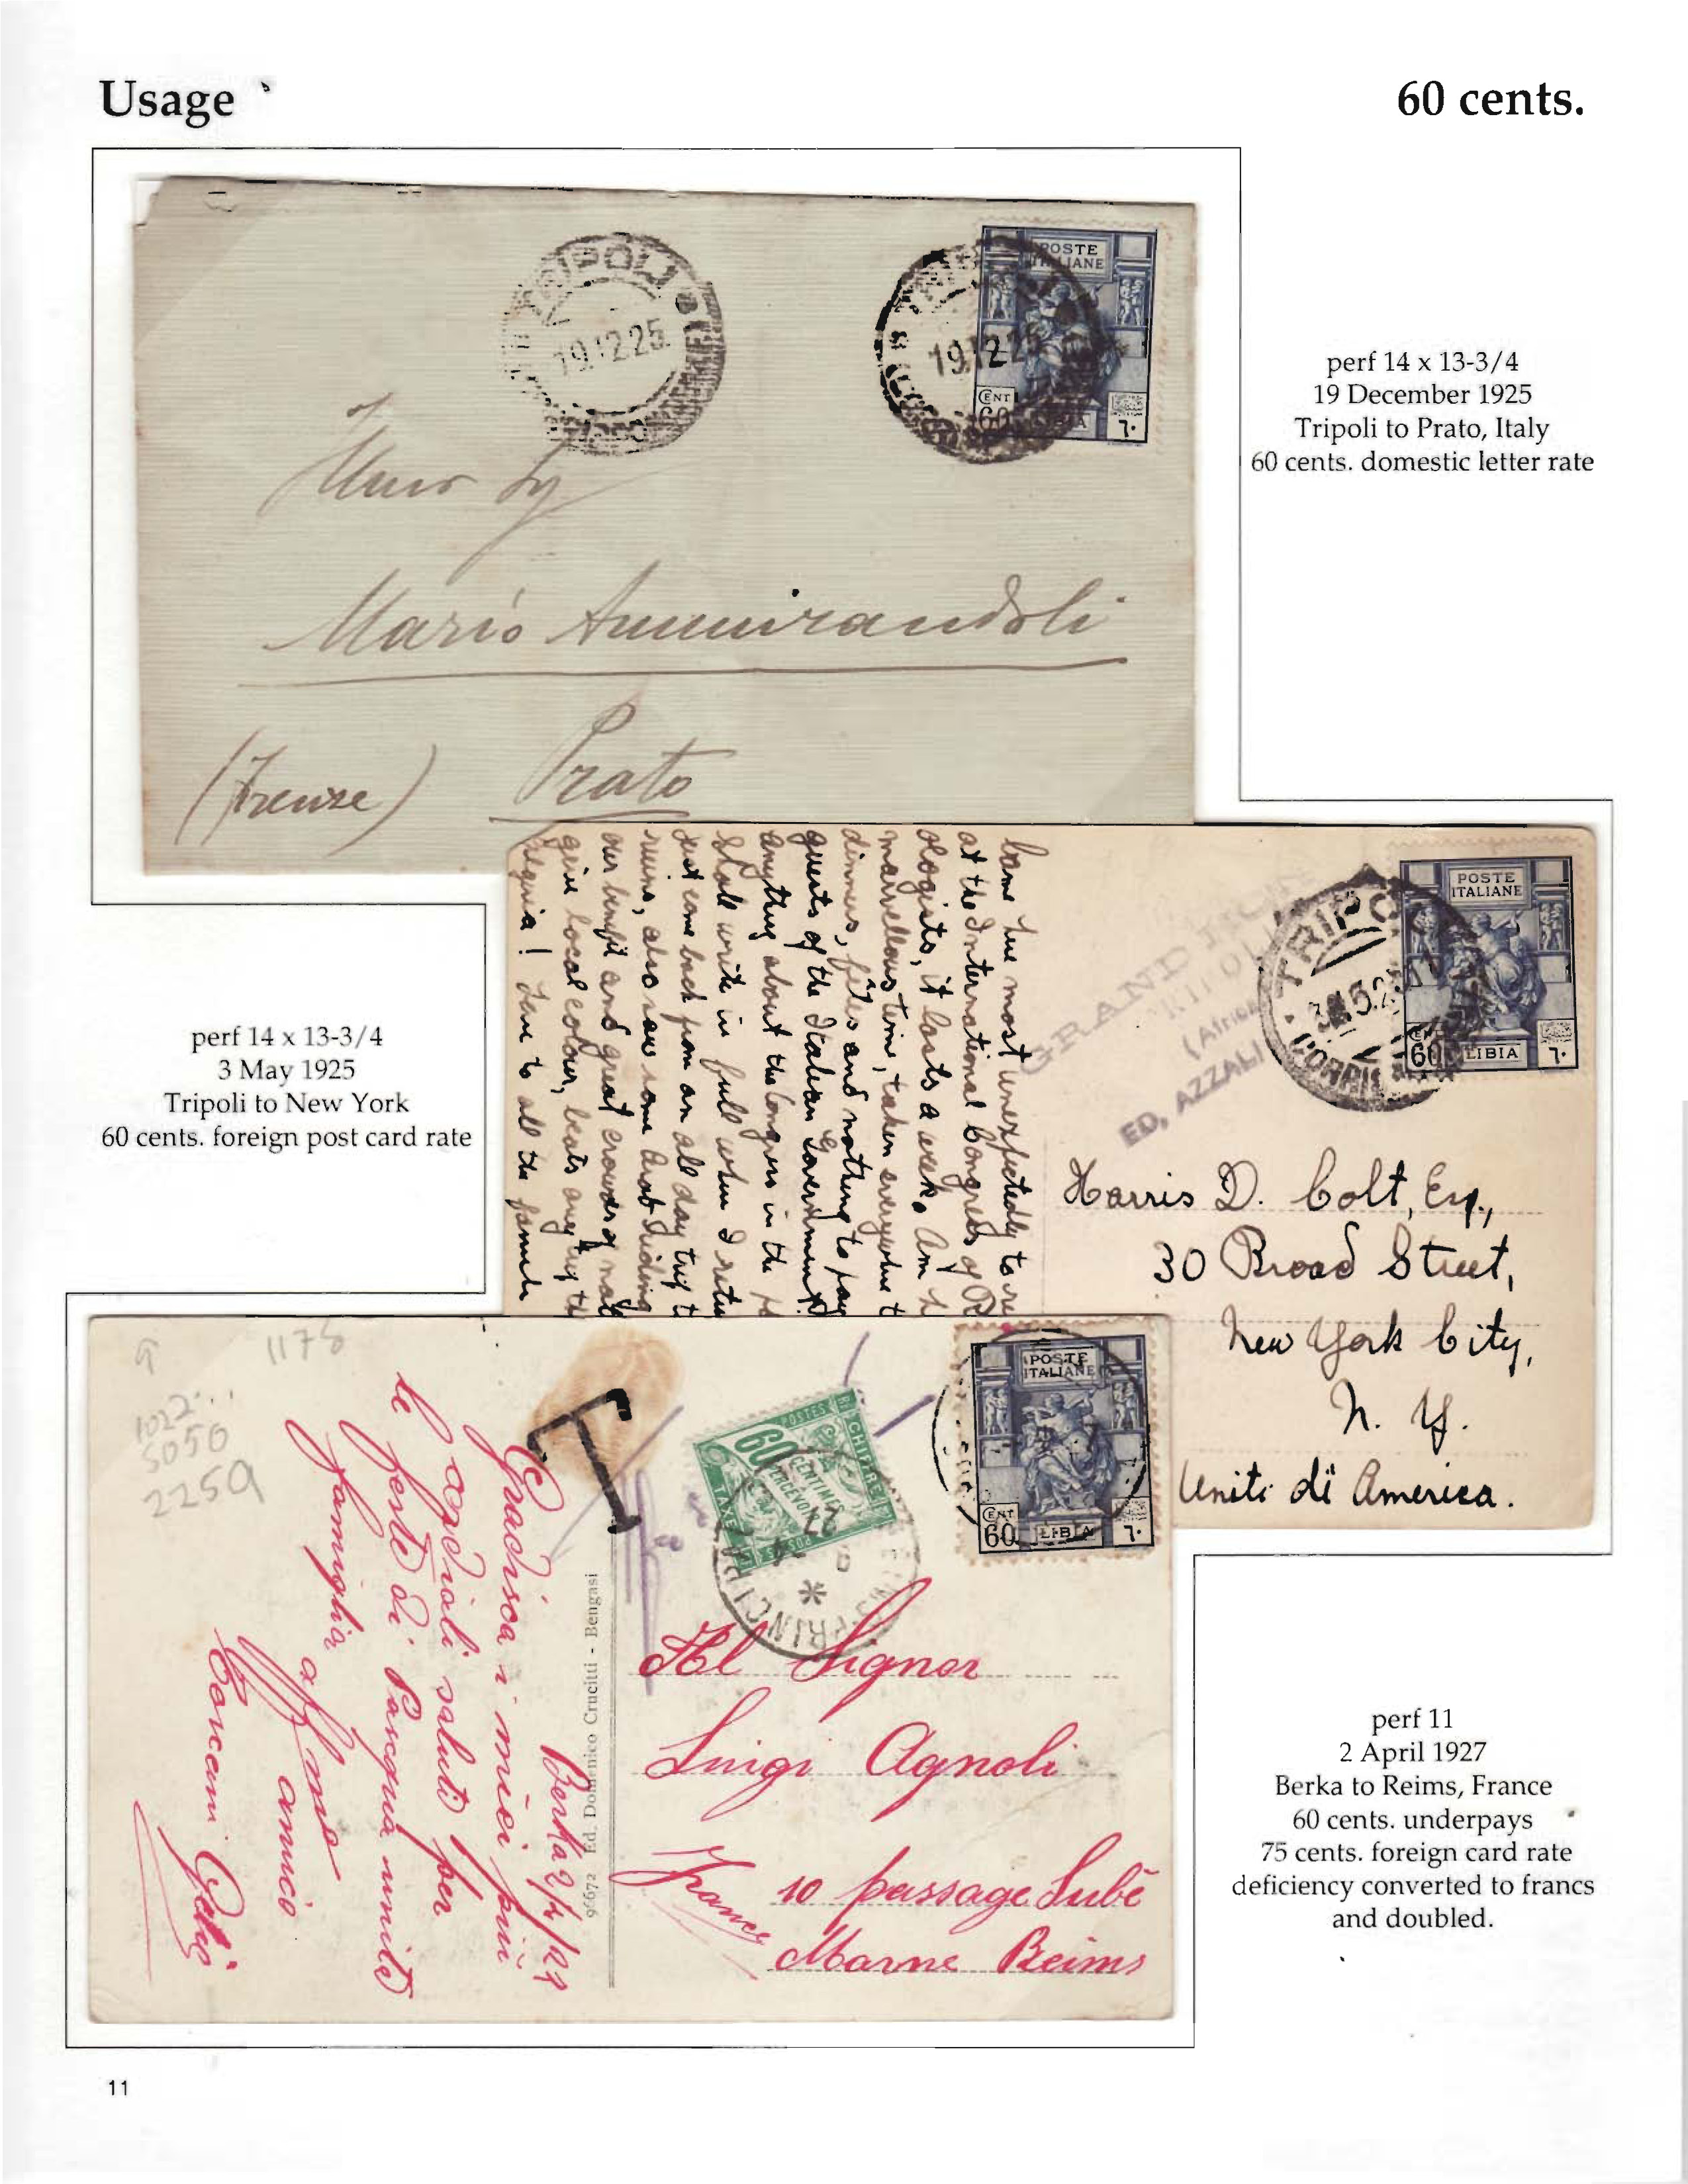 Usage
60 cents.
TRIPOLI
19.12.25
TRIPOLI
19.12.25
POSTE
ITALIANE
CENT
60
LIBIA
٦٠
Mario Ammirandoli
(Firenze)
Prato
perf 14 x 13-3/4
19 December 1925
Tripoli to Prato, Italy
60 cents. domestic letter rate
perf 14 x 13-3/4
3 May 1925
Tripoli to New York
60 cents. foreign post card rate
Came here most unexpectedly to re
at the International Congress of
ologists, it lasts a week. Am h
marvellous time, taken everywhere t
dinners, fêtes and nothing to pay
guests of the Italian Government.
anything about the Congress in the
Shall write in full when I retu
Just come back from an all day trip t
ruins, also saw some Arab riding
our benefit and great crowds of nat
give local colour, beats any
! Love to all the family
GRAND
TRIPOLI
(Africa
ED. AZZALI
TRIPO
POSTE
ITALIANE
CENT
60
LIBIA
٦٠
Harris D. Colt, Esq.,
30 Broad Street,
New York City,
N. Y.
Uniti di America.
9
1178
1022
5050
2259
T
POSTES
CHIFFRE
60
CENTIMES
A PERCEVOIR
TAXE
27
PRINCI
POSTE
ITALIANE
CENT
60
LIBIA
٦٠
Berka 2/4/27
Gradisca i miei più
cordiali saluti per
le feste di Pasqua unite
famiglia
aff mo
amico
96672 Ed. Domenico Crucitti - Bengasi
Al Signor
Luigi Agnoli
10 passage Subé
Marne Reims
France
perf 11
2 April 1927
Berka to Reims, France
60 cents. underpays
75 cents. foreign card rate
deficiency converted to francs
and doubled.
11